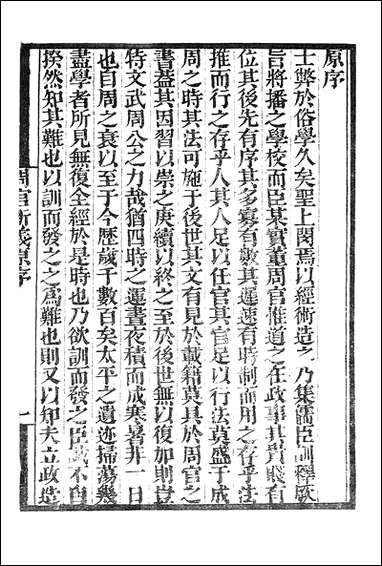 原序
士弊於俗學久矣聖上閔焉以經術造之乃集儒臣訓釋厥
旨將播之學校而臣某實董周官惟道之在政事其貴賤有
位其後先有序其多寡有數其遲速有時制而用之存乎法
推而行之存乎人其人足以任官其官足以行法莫盛于成
周之時其法可施于後世其文有見於載籍莫具於周官之
書蓋其因習以崇之庚續以終之至於後世無以復加則豈
特文武周公之力哉猶四時之運晝夜積而成寒暑非一日
也自周之衰以至于今歷歲千數百矣太平之遺迹掃蕩幾
盡學者所見無復全經於是時也乃欲訓而發之臣誠不自
揆然知其難也以訓而發之之爲難也則又以知夫立政造
周官新義原序 一